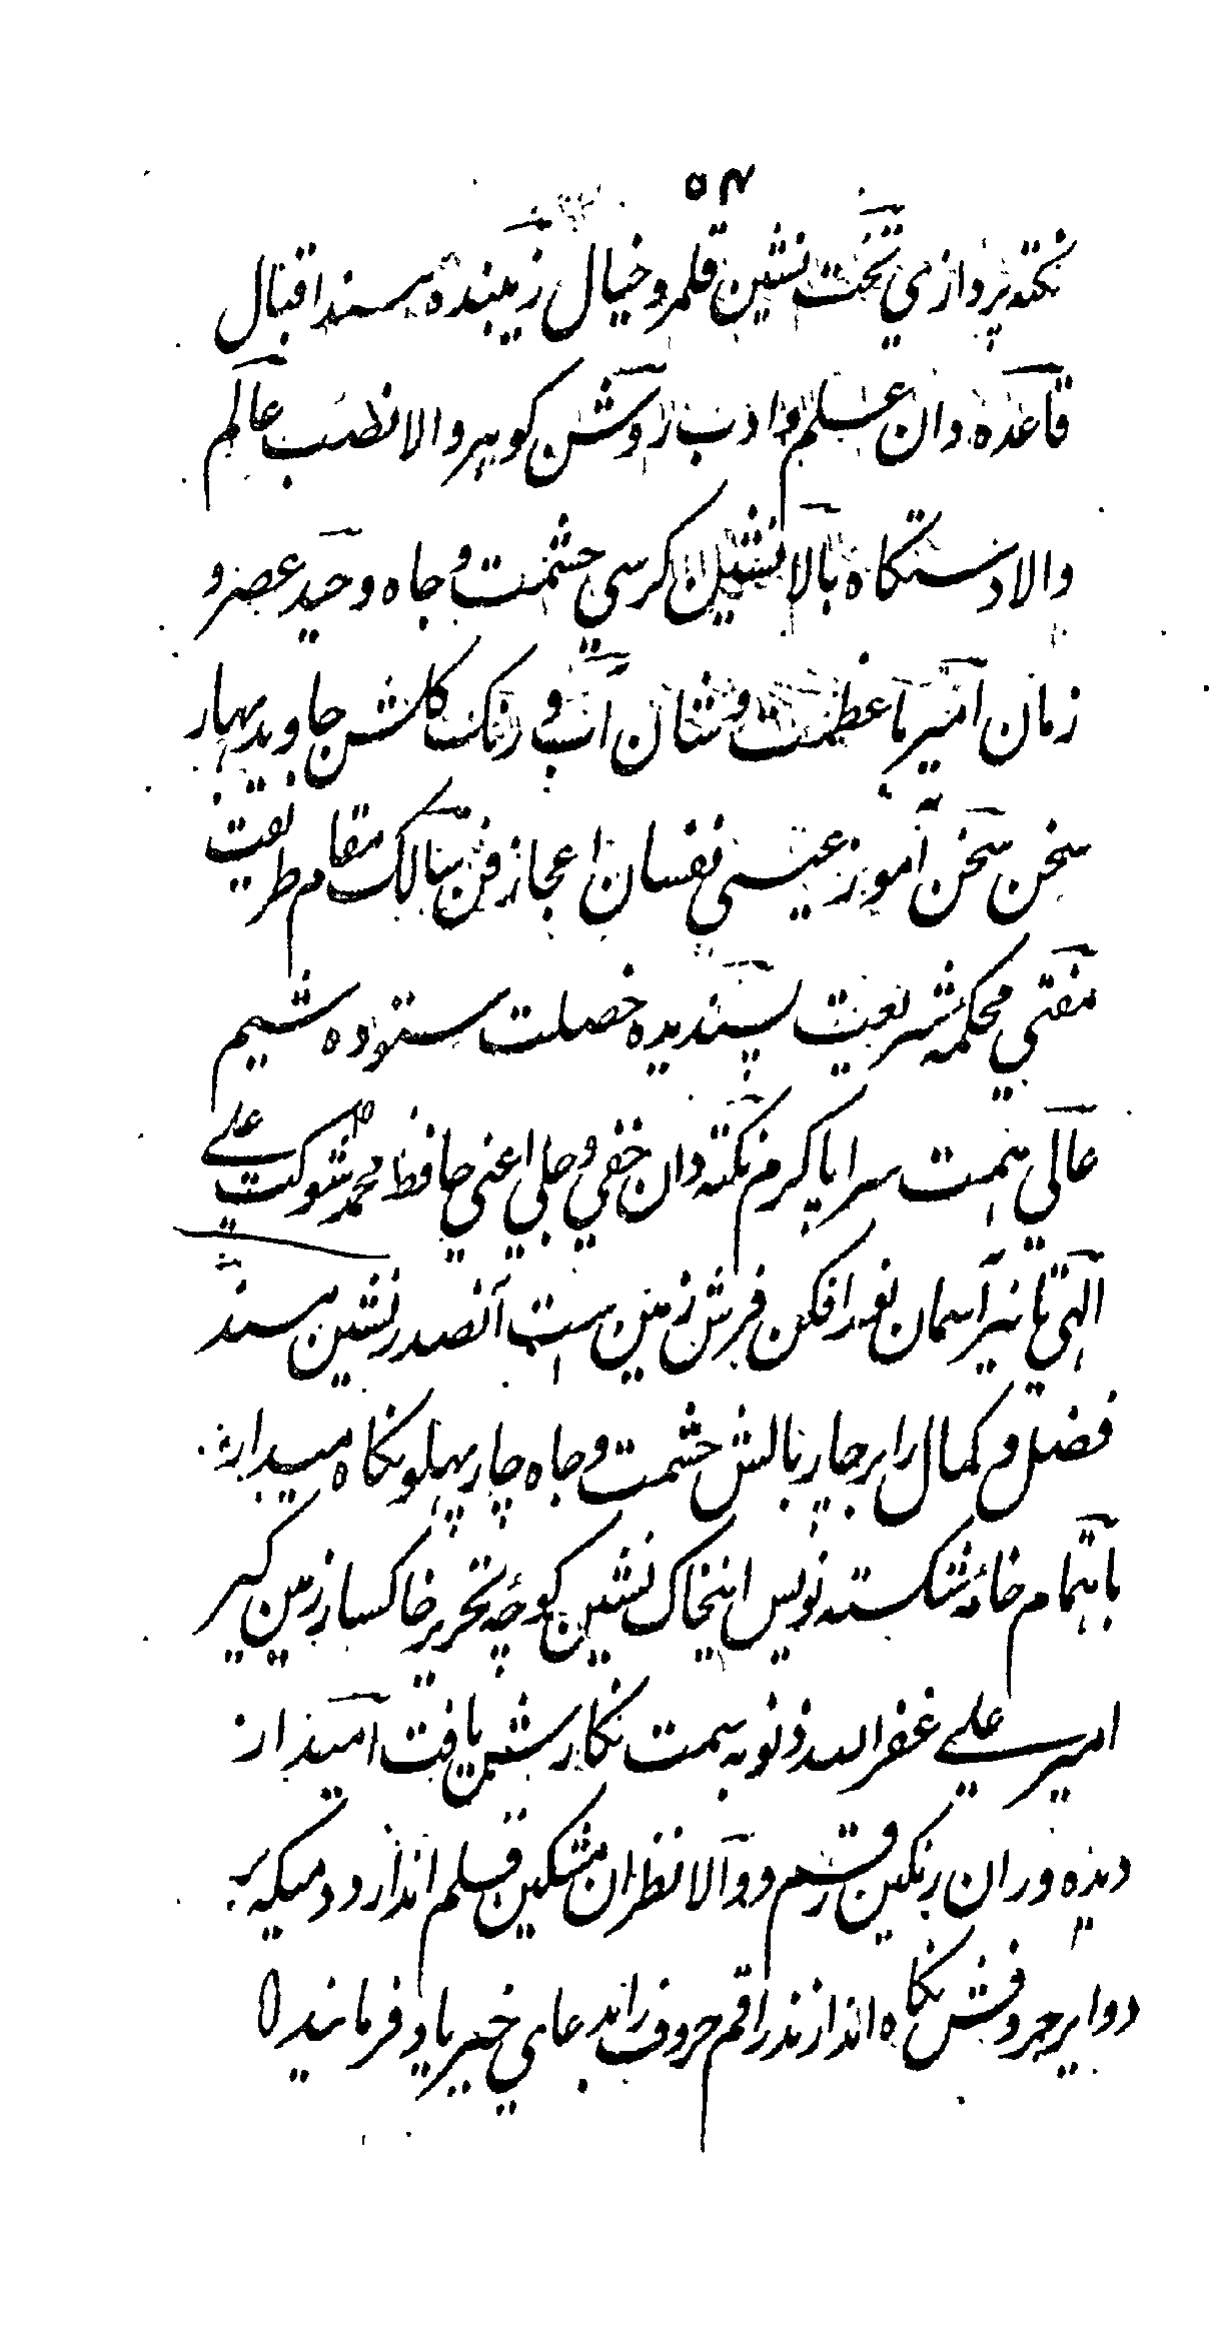 ۵۴
نکته پردازی تخت نشین قلمرو خیال زیبنده مسند اقبال
قاعده دان علم و ادب روشن کوهر والا نصب عالم
والا دستکاه بالا نشین کرسی حشمت و جاه وحید عصر و
زمان امیر با عظمت و شان آب و رنک کلشن جاوید بهار
سخن سخن آموز عیسی نفسان اعجاز فن سالک مقام طریقت
مفتی محکمه شریعت پسندیده خصلت ستوده شیم
عالی همت سراپا کرم نکته دان خفی و جلی اعنی حافظ محمد شوکت علی
الهی تا نیر آسمان نور افکن فرش زمین ست آنصدر نشین مسند
فضل و کمال را بر چار بالش حشمت و جاه چار پهلو نکاه میدار
باهتمام خامه شکسته نویس اینخاک نشین کوچه تحریر خاکسار زمین کیر
امیر علی غفر الله ذنوبه سمت نکارش یافت امید از
دیده وران رنکین رقم و والا نظران مشکین قلم اندارد دمیکه بر
دوایر حروفش نکاه اندازند راقم حروف را بدعای خیر یاد فرمایند